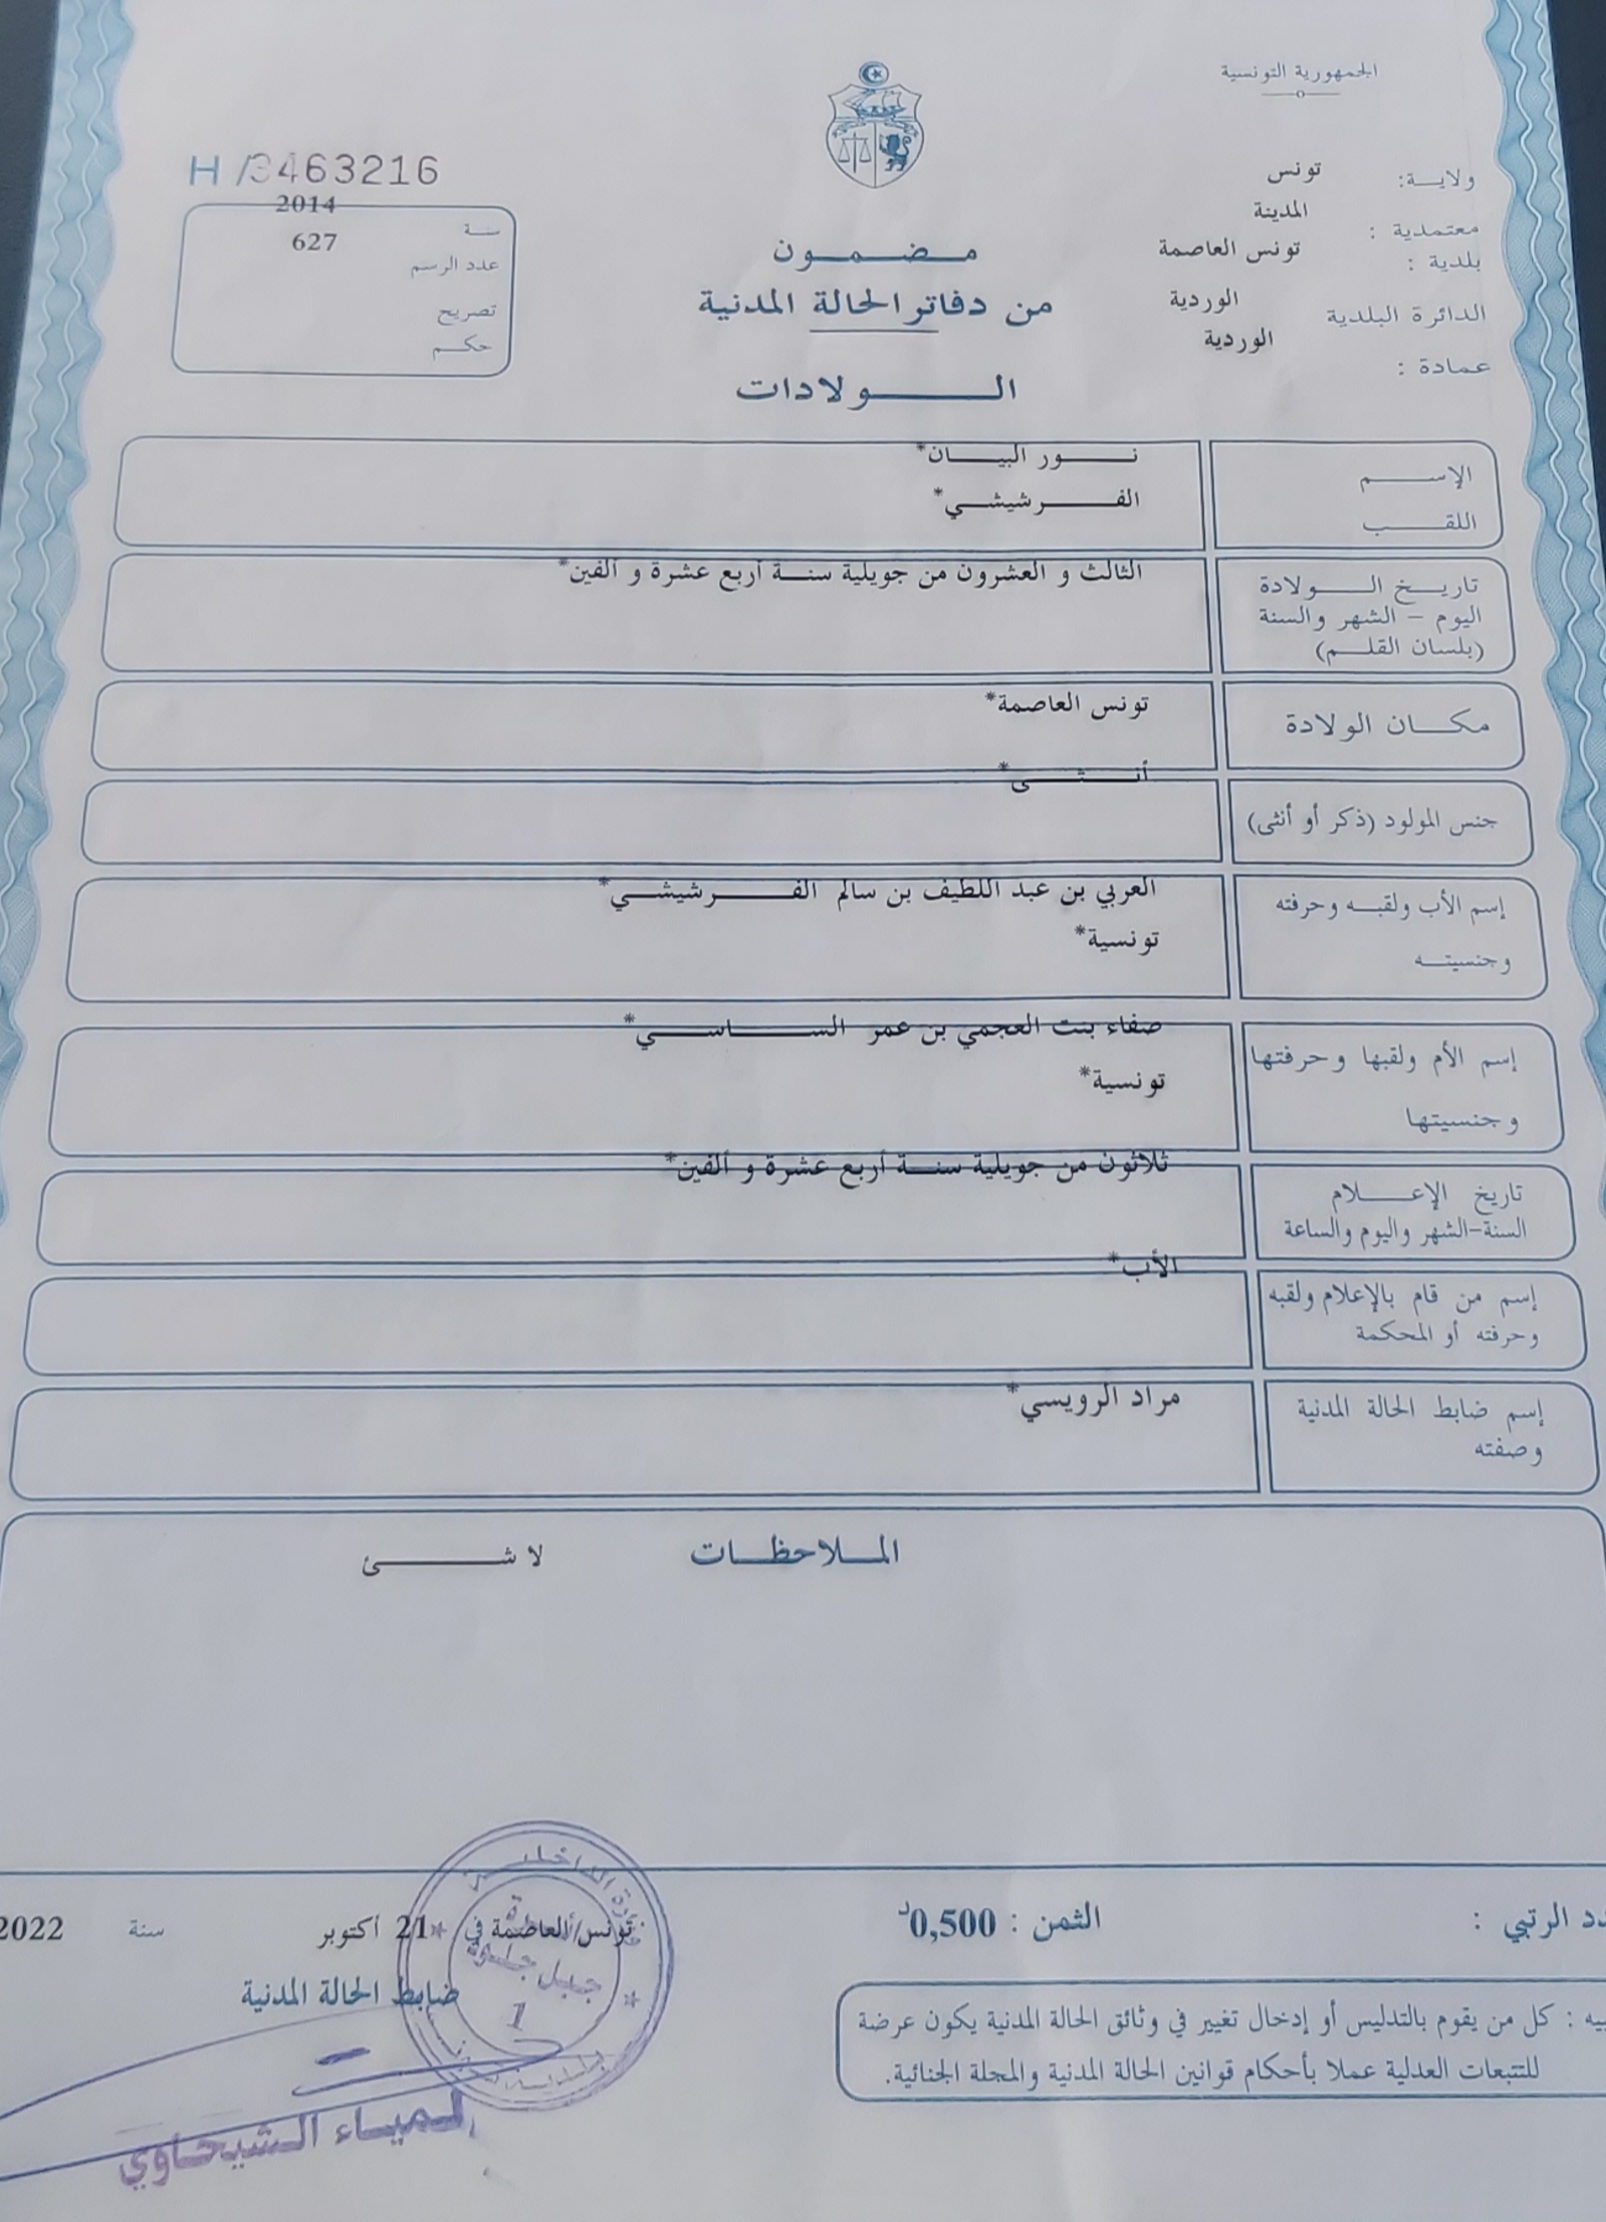 الجمهورية التونسية
ولاية: تونس
معتمدية : المدينة
بلدية : تونس العاصمة
الدائرة البلدية الوردية
عمادة : الوردية
H /3463216
سنة 2014
عدد الرسم 627
تصريح
حكم
مضمون
من دفاتر الحالة المدنية
الولادات
الإسم نور البيان*
اللقب الفرشيشي*
تاريخ الولادة الثالث و العشرون من جويلية سنة أربع عشرة و ألفين*
اليوم – الشهر والسنة
(بلسان القلم)
مكان الولادة تونس العاصمة*
جنس المولود (ذكر أو أنثى) أنثى*
إسم الأب ولقبه وحرفته العربي بن عبد اللطيف بن سالم الفرشيشي*
وجنسيته تونسية*
إسم الأم ولقبها وحرفتها صفاء بنت العجمي بن عمر الساسي*
وجنسيتها تونسية*
تاريخ الإعلام ثلاثون من جويلية سنة أربع عشرة و ألفين*
السنة-الشهر واليوم والساعة
إسم من قام بالإعلام ولقبه الأب*
وحرفته أو المحكمة
إسم ضابط الحالة المدنية مراد الرويسي*
وصفته
الملاحظات لا شئ
الرتبي : الثمن : 0,500د
تونس/العاصمة في 21 أكتوبر سنة 2022
ضابط الحالة المدنية
كل من يقوم بالتدليس أو إدخال تغيير في وثائق الحالة المدنية يكون عرضة
للتتبعات العدلية عملا بأحكام قوانين الحالة المدنية والمجلة الجنائية.
جبل جلود
1
لمياء الشيحاوي